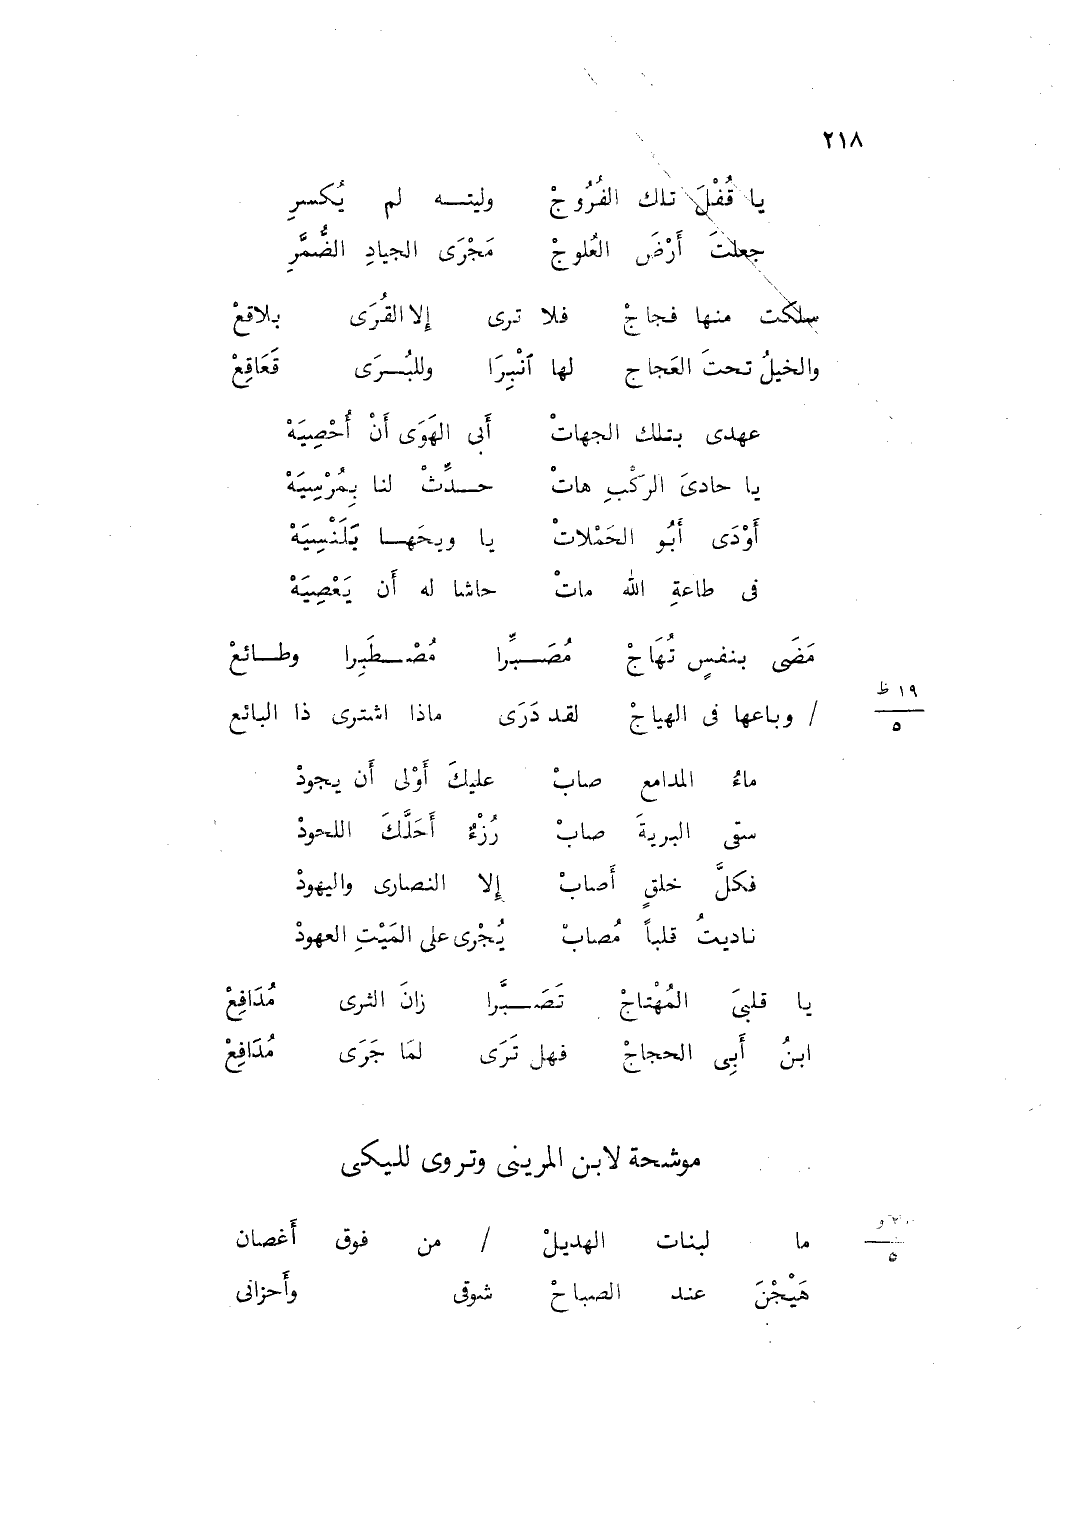 ٢١٨
يا قُفْلَ تلك الفُرُوجْ وليتـــه لم يُكسرِ
جعلتَ أَرْضَ العُلوجْ مَجْرَى الجيادِ الضُّمَّرِ
سلكت منها فجاجْ فلا ترى إلا القُرَى بلاقعْ
والخيلُ تحتَ العَجاج لها ٱنْبِرَا وللبُــرَى قَعَاقِعْ
عهدى بتلك الجهاتْ أَبى الهَوَى أَنْ أُحْصِيَهْ
يا حادىَ الركْبِ هاتْ حــدِّثْ لنا بِمُرْسِيَهْ
أَوْدَى أَبُو الحَمْلاتْ يا ويحَهــا بَلَنْسِيَهْ
فى طاعةِ الله ماتْ حاشا له أَن يَعْصِيَهْ
مَضَى بنفسٍ تُهَاجْ مُصَــبِّرا مُصْـطَبِرا وطــائعْ
١٩ ظ
/ وباعها فى الهياجْ لقد دَرَى ماذا اشترى ذا البائع
٥
ماءُ المدامع صابْ عليكَ أَوْلى أَن يجودْ
سقى البريةَ صابْ رُزْءٌ أَحَلَّكَ اللحودْ
فكلَّ خلقٍ أَصابْ إلا النصارى واليهودْ
ناديتُ قلباً مُصابْ يُجْرى على المَيْتِ العهودْ
يا قلبىَ المُهْتاجْ تَصَــبَّرا زانَ الثرى مُدَافِعْ
ابنُ أَبِى الحجاجْ فهل تَرَى لمَا جَرَى مُدَافِعْ
موشحة لابن المرينى وتروى لليكى
٢٠ و
ما لبنات الهديلْ / من فوق أَغصان
٥
هَيْجْنَ عند الصباحْ شوقى وأَحزانى